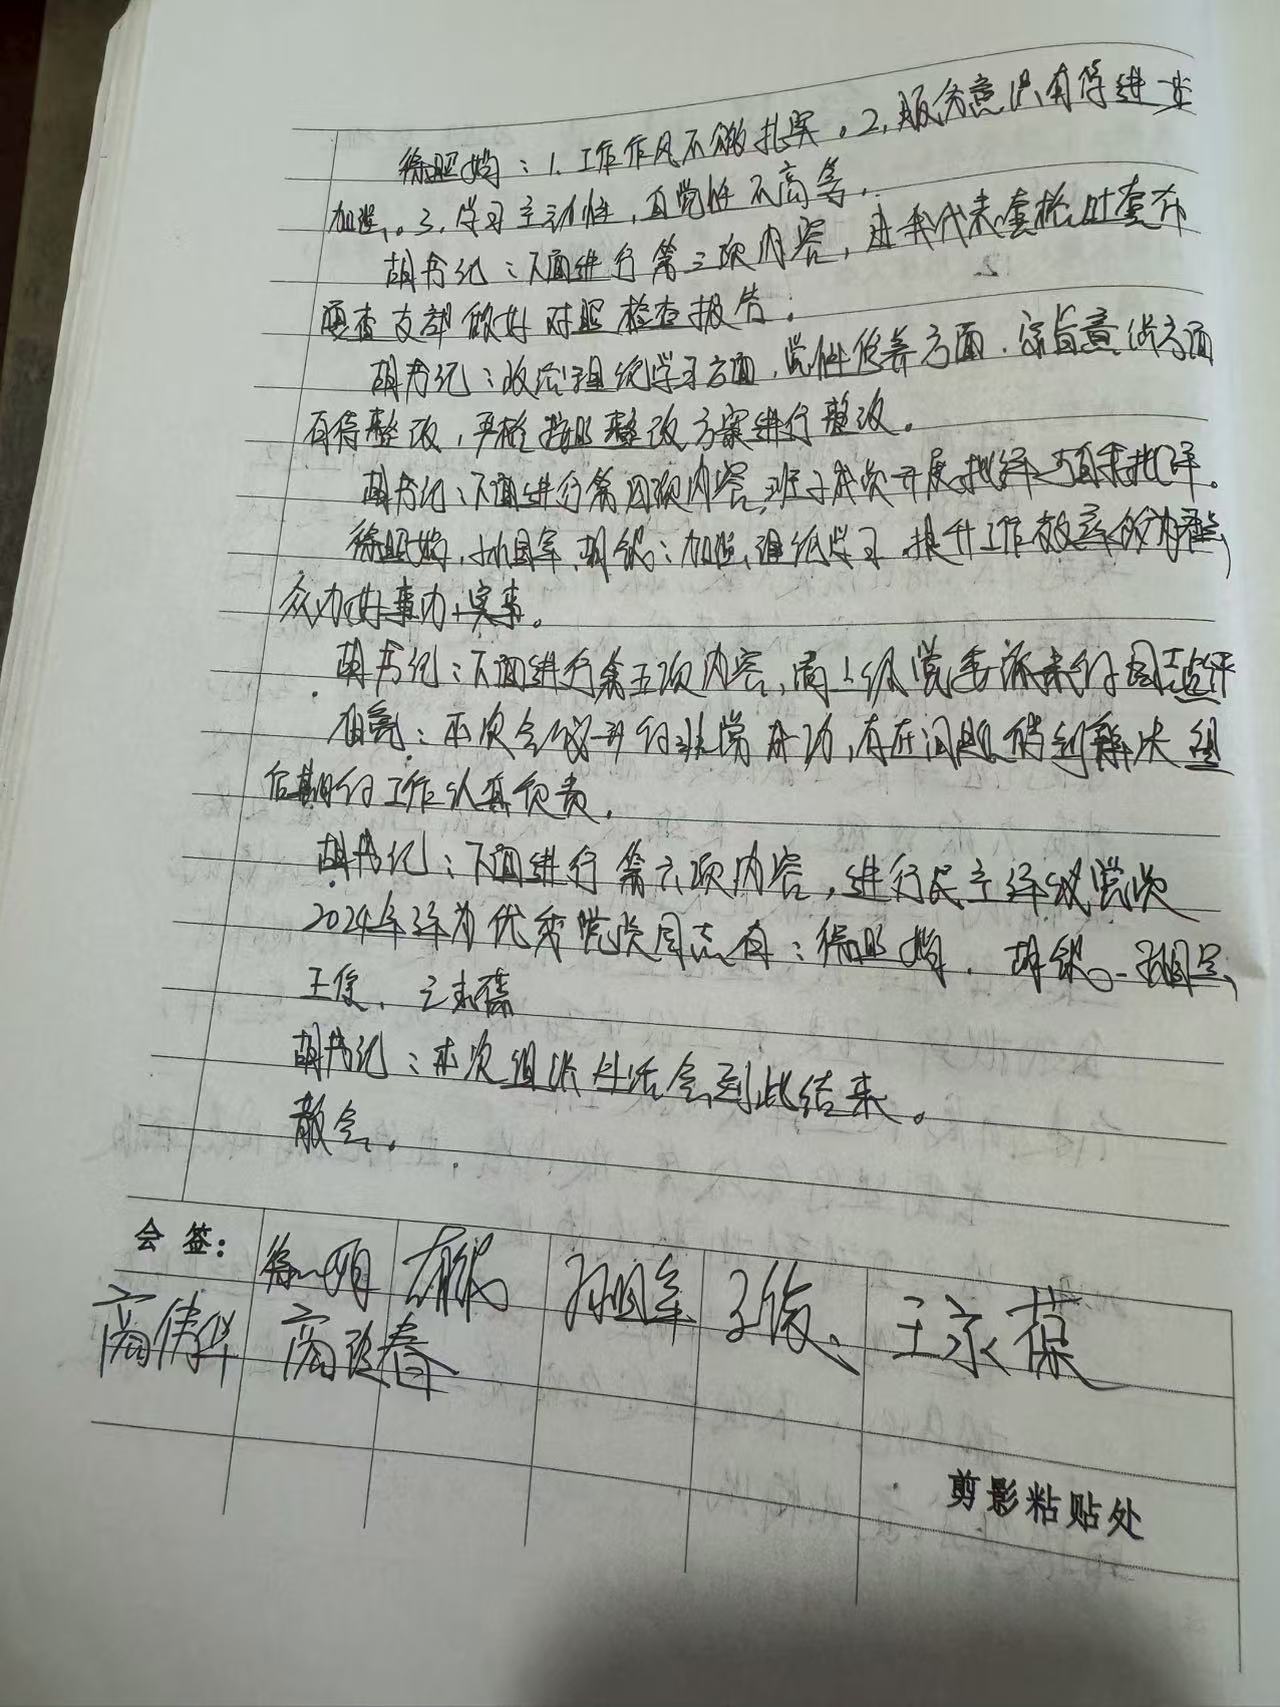 徐照娣：1.工作作风不够扎实。2.服务意识有待进一步
加强。3.学习主动性，自觉性不高等。
胡书记：下面进行第三项内容，由我代表
支部做好对照检查报告。
胡书记：政治理论学习方面，党性修养方面，宗旨意识方面
有待整改，严格按照整改方案进行整改。
胡书记：下面进行第四项内容，班子成员开展批评与自我批评。
胡银：加强理论学习，提升工作效率的为群
众办好事办实事。
胡书记：下面进行第五项内容，请上级党委派来的同志点评
本次会议开的非常成功，存在问题得到解决
后期的工作认真负责。
胡书记：下面进行第六项内容，进行民主评议党员
2024年评为优秀党员同志有：徐照娣、胡银、孙国军、
王俊、王永葆
胡书记：本次组织生活会到此结束。
散会。
会签：
胡银 孙国军 王俊 王永葆
剪影粘贴处